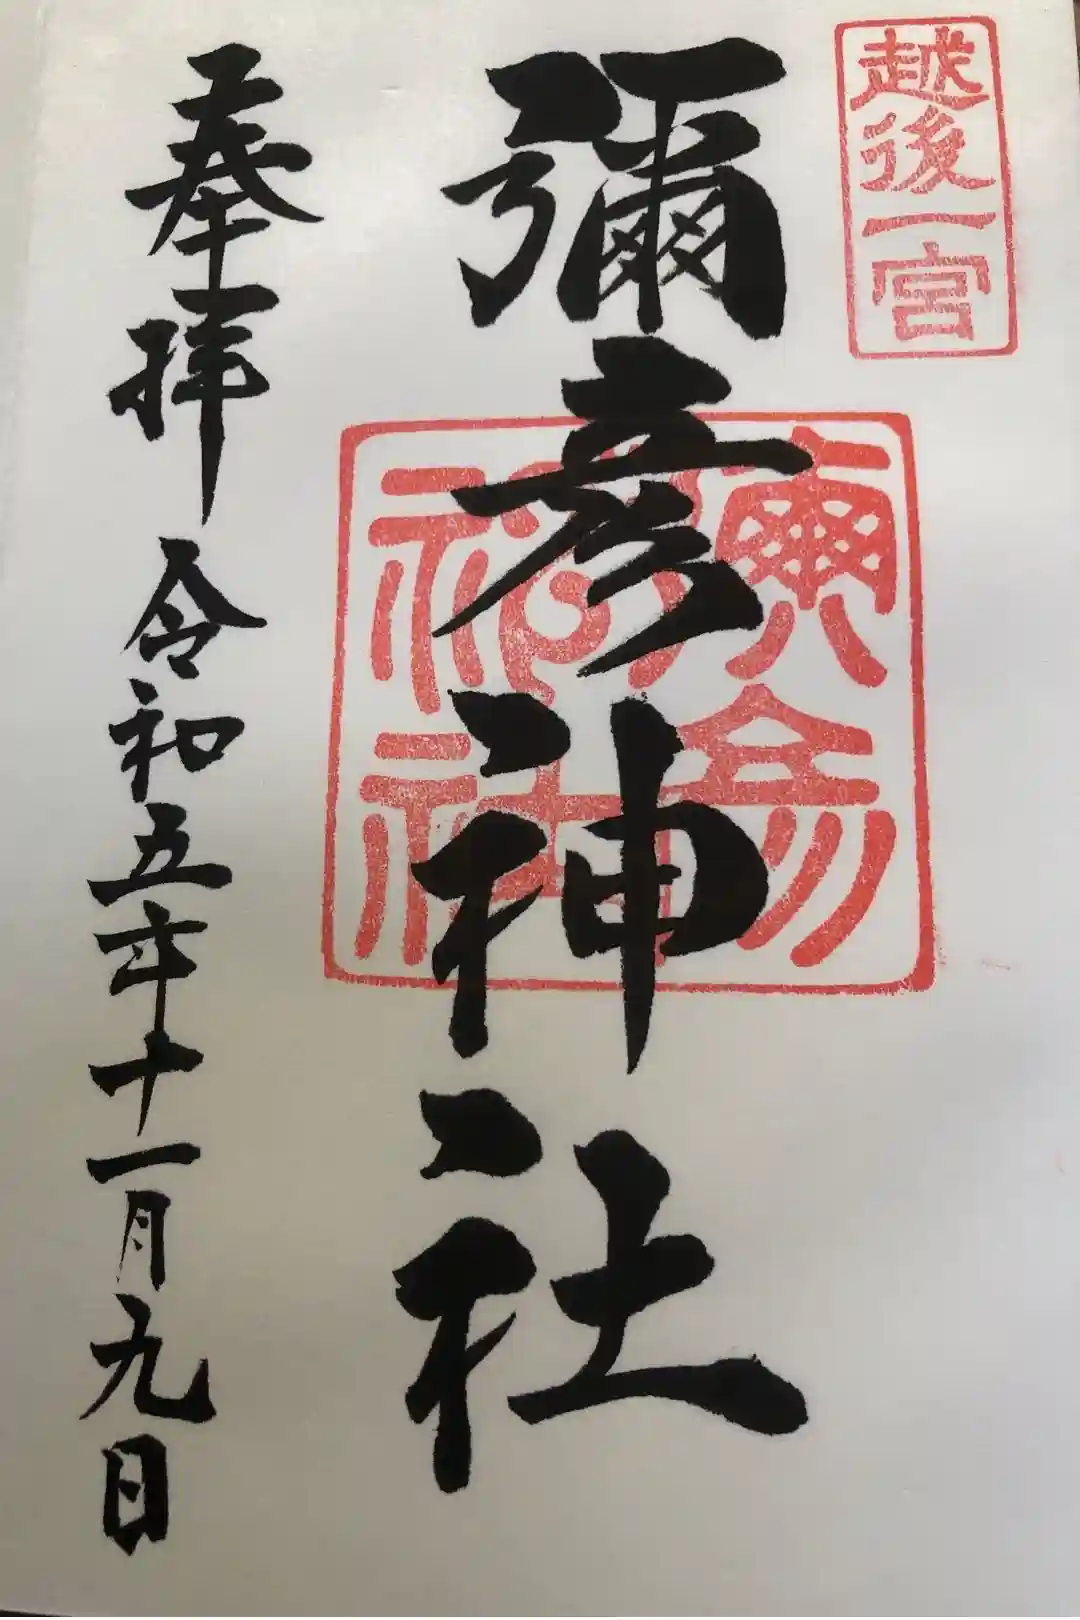 越後一宮
彌彦神社
奉拝
令和五年十一月九日